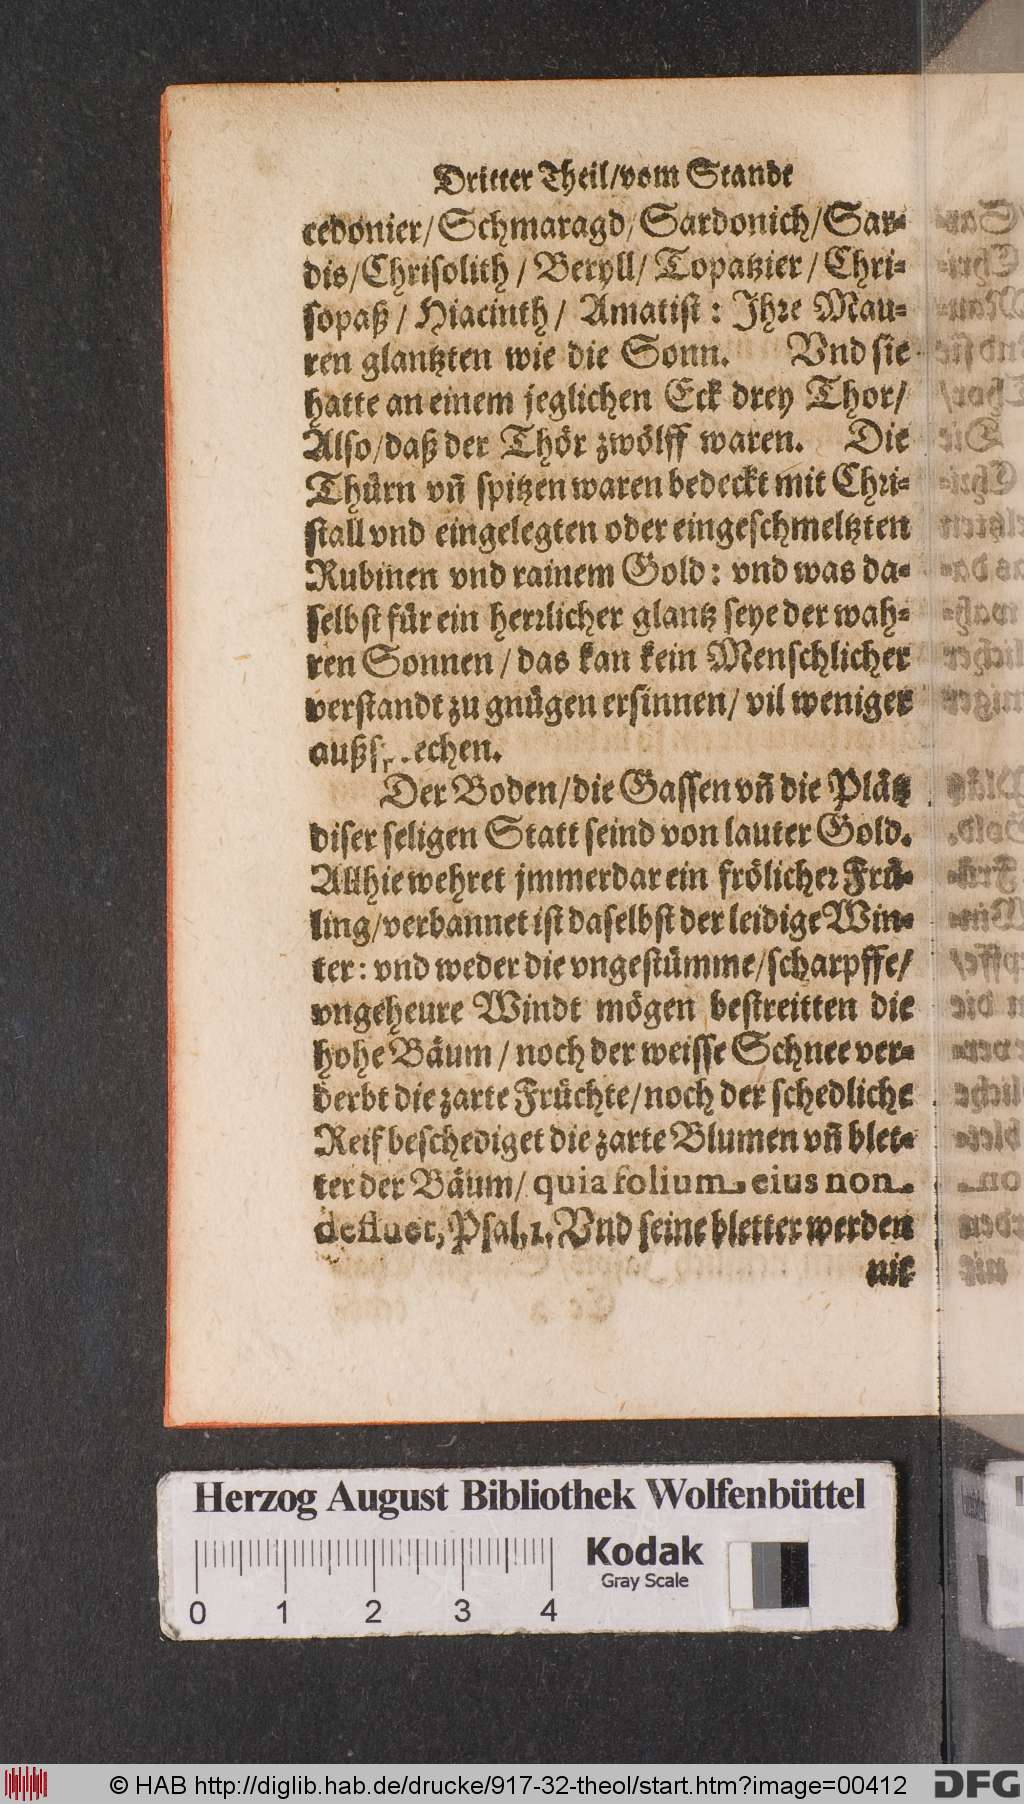 Dritter Theil/vom Stande
cedonier/Schmaragd/Sardonich/Sar-
dis/Chrisolith/ Beryll/ Topatzier/ Chri-
sopaß/ Hiacinth/ Amatist: Ihre Mau-
ren glantzten wie die Sonn. Vnd sie
hatte an einem jeglichen Eck drey Thor/
Also/daß der Thör zwölff waren. Die
Thürn vñ spitzen waren bedeckt mit Chri-
stall vnd eingelegten oder eingeschmeltzten
Rubinen vnd rainem Gold: vnd was da-
selbst für ein herrlicher glantz seye der wah-
ren Sonnen/das kan kein Menschlicher
verstandt zu gnügen ersinnen/ vil weniger
Der Boden/die Gassen vñ die Plätz
diser seligen Statt seind von lauter Gold.
Allhie wehret jmmerdar ein frölicher Frü-
ling/verbannet ist daselbst der leidige Win-
ter: vnd weder die vngestümme/scharpffe/
vngeheure Windt mögen bestreitten die
hohe Bäum/ noch der weisse Schnee ver-
derbt die zarte Früchte/noch der schedliche
Reif beschediget die zarte Blumen vñ blet-
ter der Bäum/ quia folium eius non
defluet, Psal. 1. Vnd seine bletter werden
nit
Herzog August Bibliothek Wolfenbüttel
Kodak
Gray Scale
0 1 2 3 4
© HAB http://diglib.hab.de/drucke/917-32-theol/start.htm?image=00412 DFG